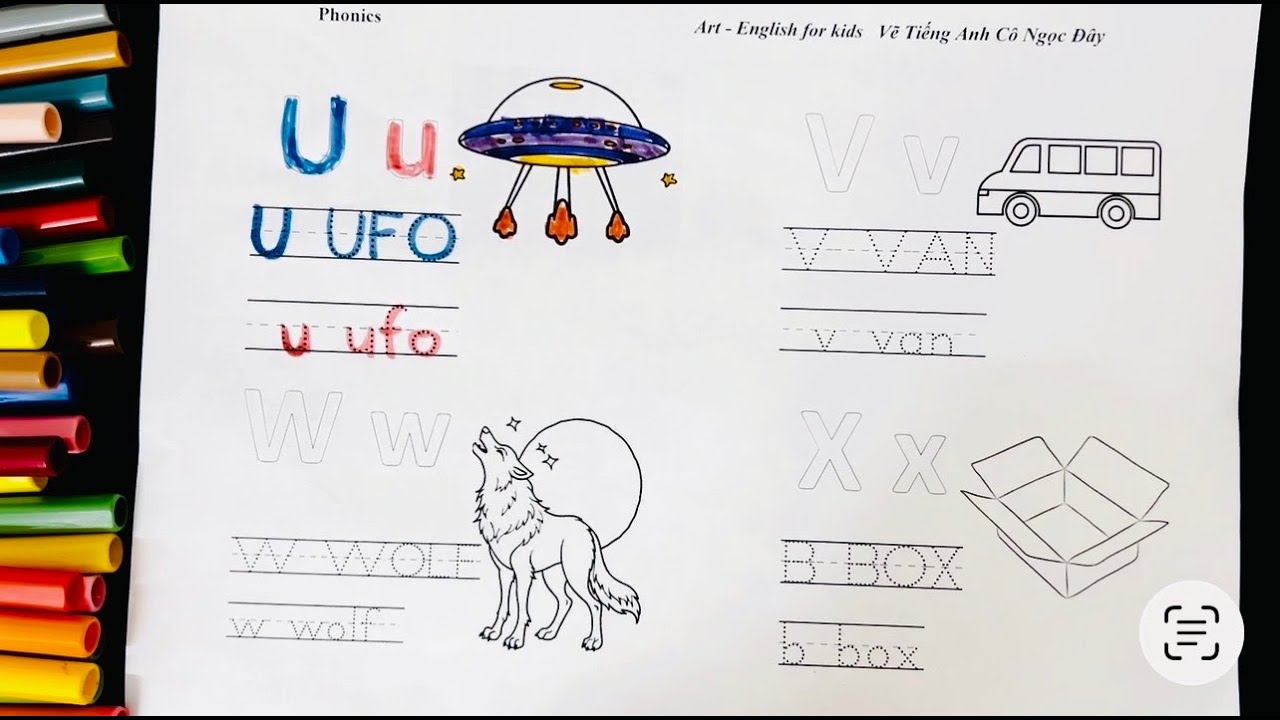 Phonics
Art - English for kids Vẽ Tiếng Anh Cô Ngọc Đây
U u
U UFO
u ufo
V v
V VAN
v van
W w
W WOLF
w wolf
X x
B BOX
b box